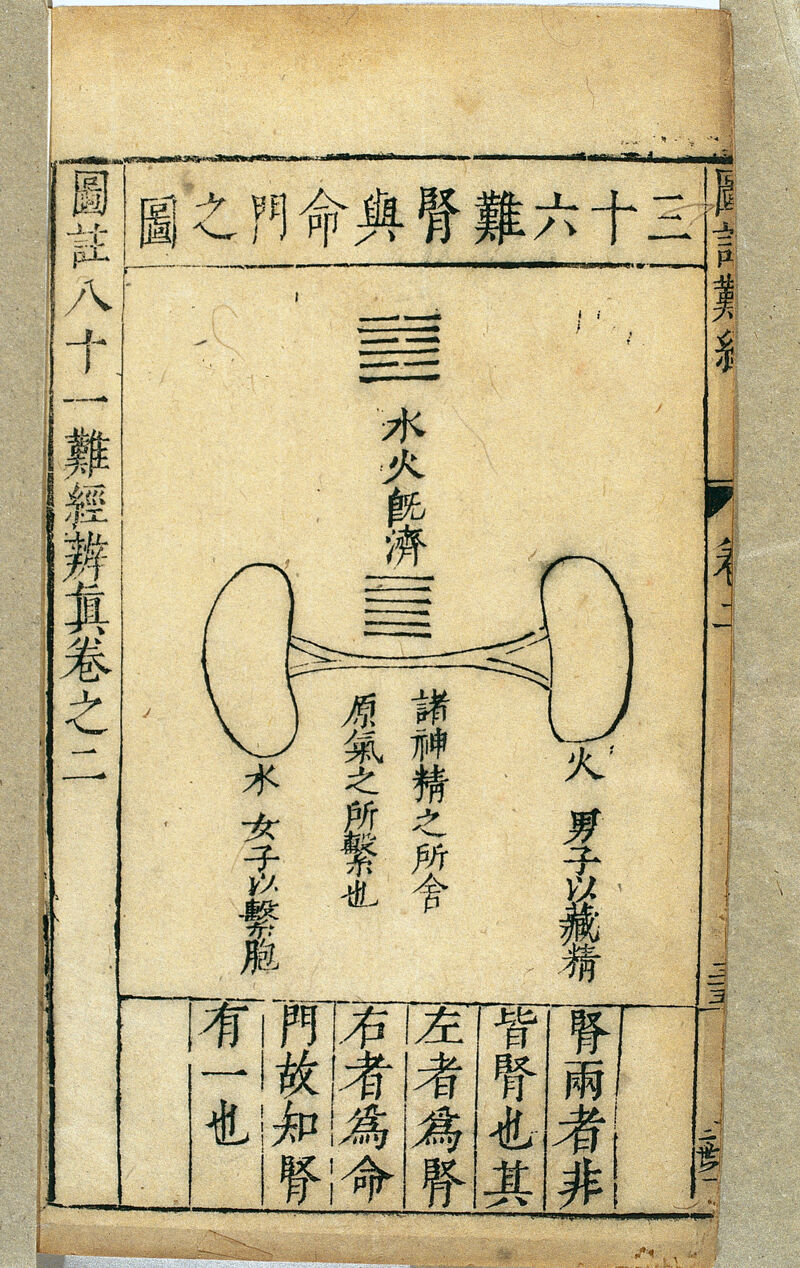 圖註難經
卷二
三十六難腎與命門之圖
水火既濟
火
男子以藏精
諸神精之所舍
原氣之所繫也
水
女子以繫胞
腎兩者非
皆腎也其
左者爲腎
右者爲命
門故知腎
有一也
圖註八十一難經辨眞卷之二